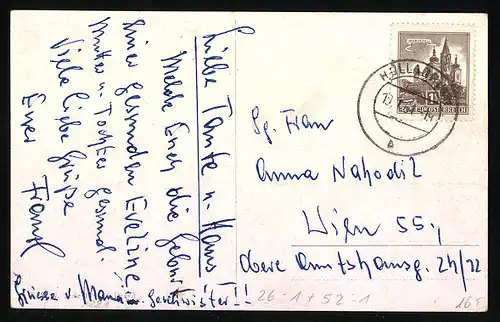 Liebe Tante u. Hans
Melde Euch die Geburt
einer gesunden Eveline
Mutter u. Tochter gesund.
Viele liebe Grüße
Euer Franzl
Grüsse v. Mama u. Geschwister!!
Sg. Frau
Anna Nahodil
Wien 55.,
Obere Amtshausg. 24/22
26-1+52-1
HOLLABR
a